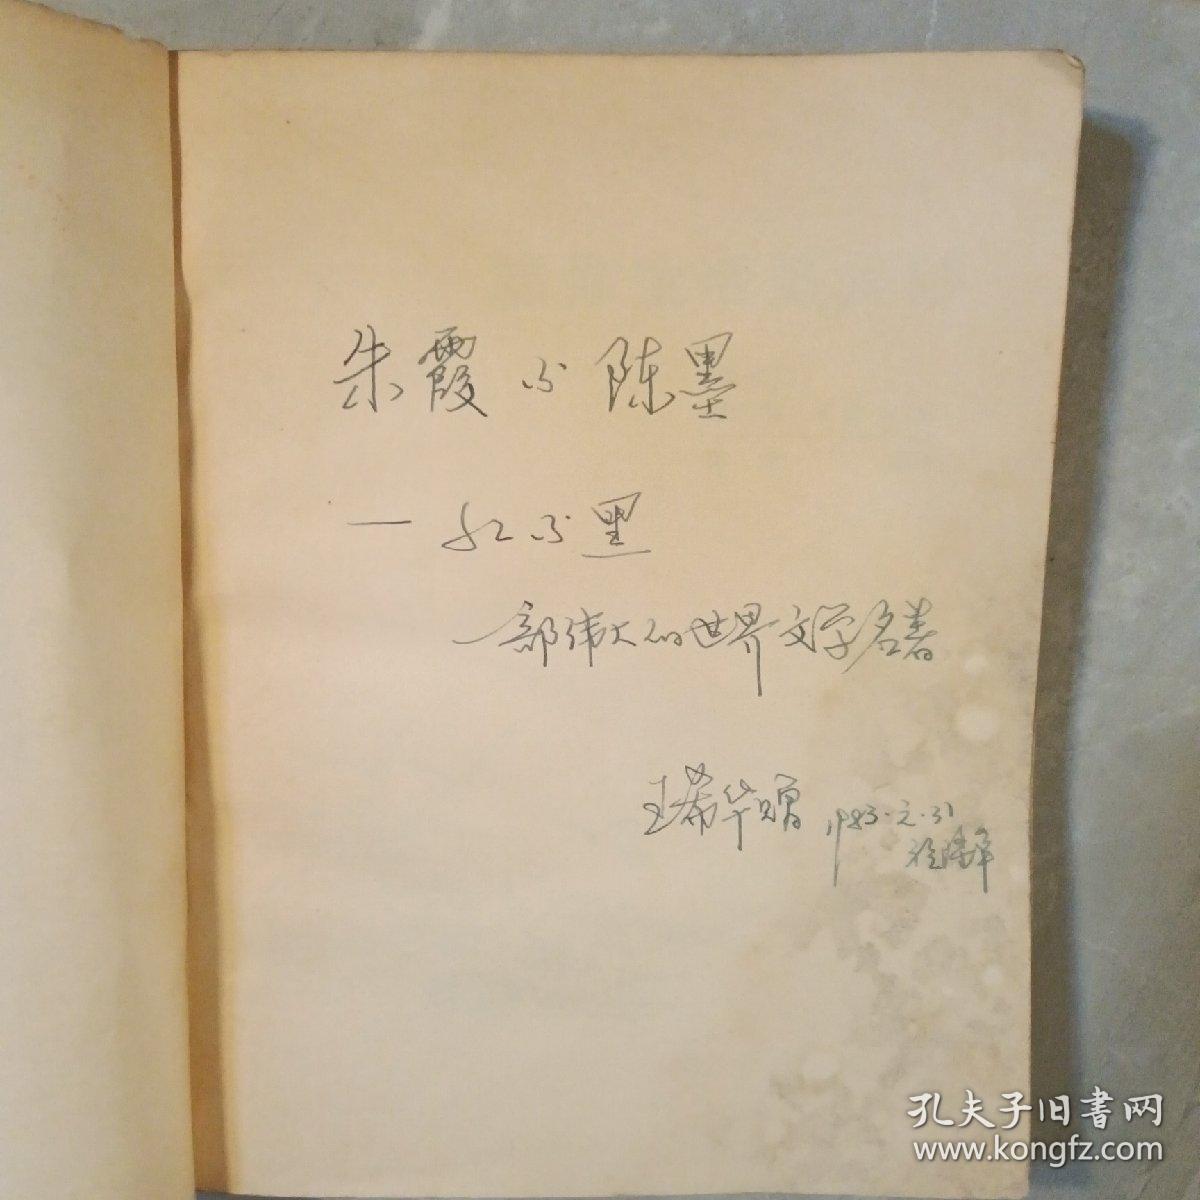 朱霞与陈墨
—红与黑
一部伟大的世界文学名著
王希华赠
1983.元.31
孔夫子旧书网
www.kongfz.com